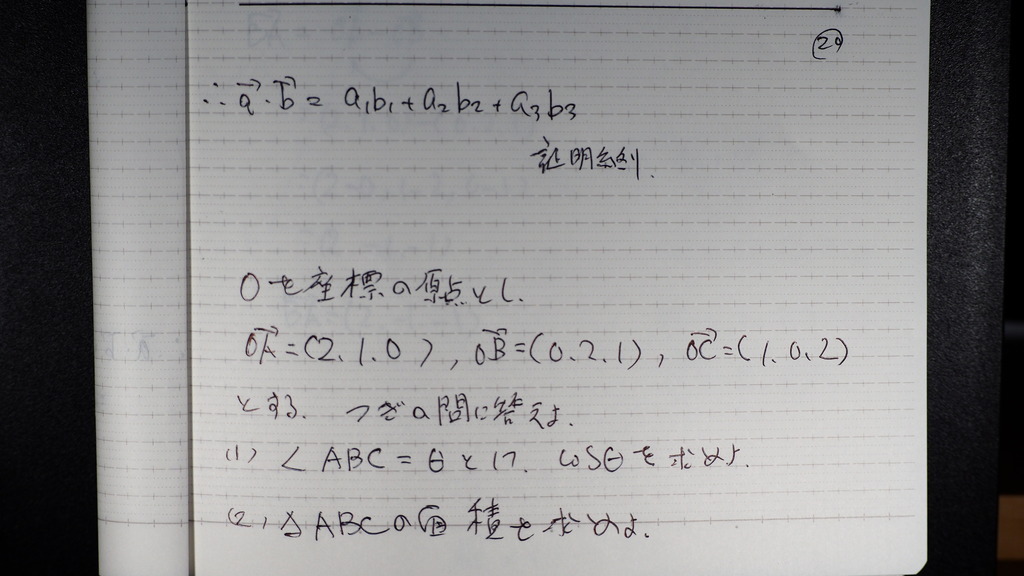 29
∴ a⃗・b⃗ = a₁b₁+a₂b₂+a₃b₃
証明終り.
Oを座標の原点とし.
OA⃗=(2.1.0), OB⃗=(0.2.1), OC⃗=(1.0.2)
とする. つぎの問に答えよ.
(1) ∠ABC=θと cosθを求めよ.
(2) △ABCの面積を求めよ.